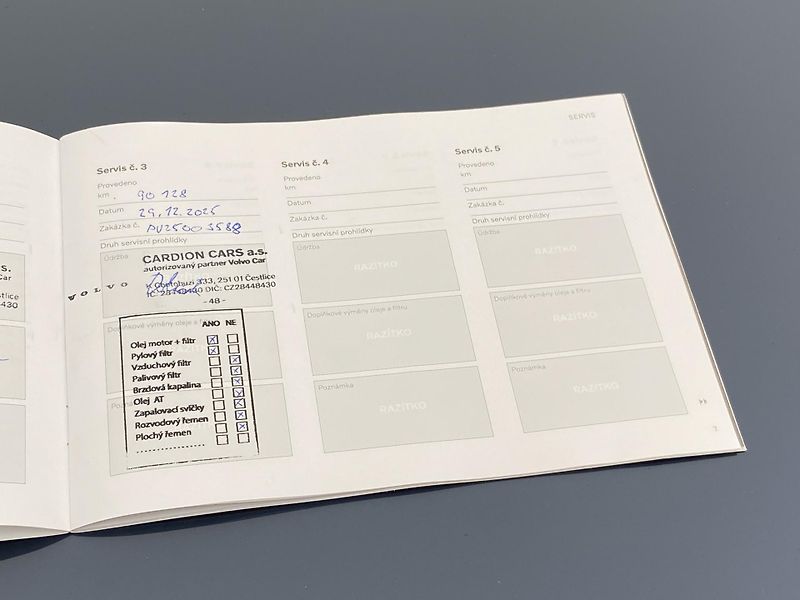 SERVIS
Servis č. 3
Provedeno
km 90 128
Datum 29.12.2025
Zakázka č.
Druh servisní prohlídky
Údržba
CARDION CARS a.s.
autorizovaný partner Volvo Car
333, 251 01 Čestlice
DIČ: CZ28448430
- 48 -
VOLVO
Doplňkové výměny oleje a
ANO NE
Olej motor + filtr
Pylový filtr
Vzduchový filtr
Palivový filtr
Brzdová kapalina
Olej AT
Zapalovací svíčky
Rozvodový řemen
Plochý řemen
Servis č. 4
Provedeno
km
Datum
Zakázka č.
Druh servisní prohlídky
Údržba
RAZÍTKO
Doplňkové výměny oleje a filtru
RAZÍTKO
Poznámka
RAZÍTKO
Servis č. 5
Provedeno
km
Datum
Zakázka č.
Druh servisní prohlídky
Údržba
RAZÍTKO
Doplňkové výměny oleje a filtru
RAZÍTKO
Poznámka
RAZÍTKO
S.
Car
stlice
430